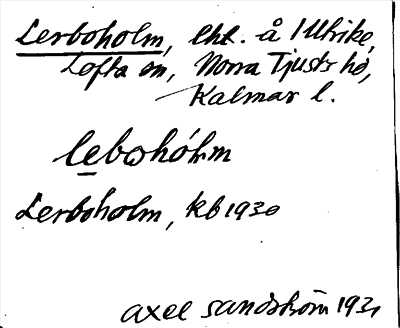 Lerboholm, lht. å 1 Ulrike,
Lofta sn, Norra Tjusts hd,
Kalmar l.
lebωhółm
Lerboholm, kb 1930
Axel Sandström 1931